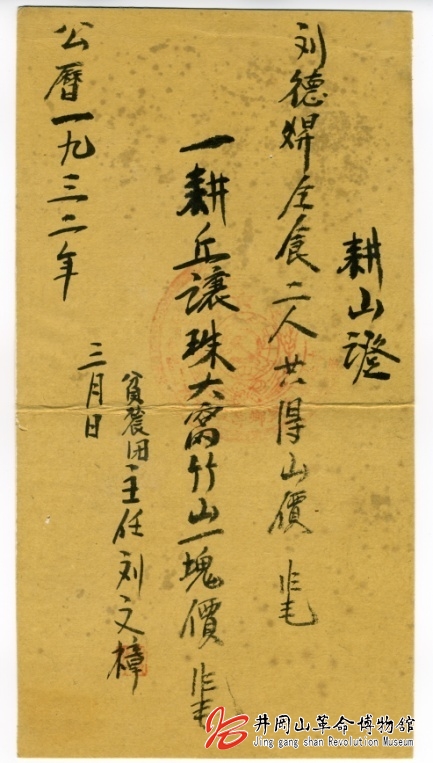 耕山證
刘德焊仝食二人共得山價
一耕丘讓珠大窩竹山一塊價
貧農团主任刘文樟
公曆一九三二年
三月日
井冈山革命博物館
Jing gang shan Revolution Museum